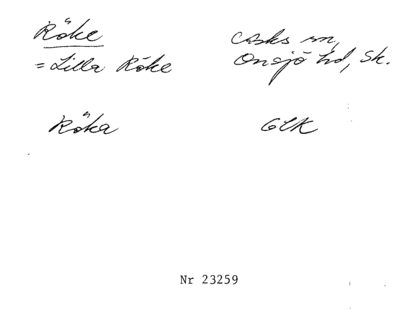 Röke
= Lilla Röke
Casks sn,
Onsjö hd, Sk.
Röka
GEK
Nr 23259